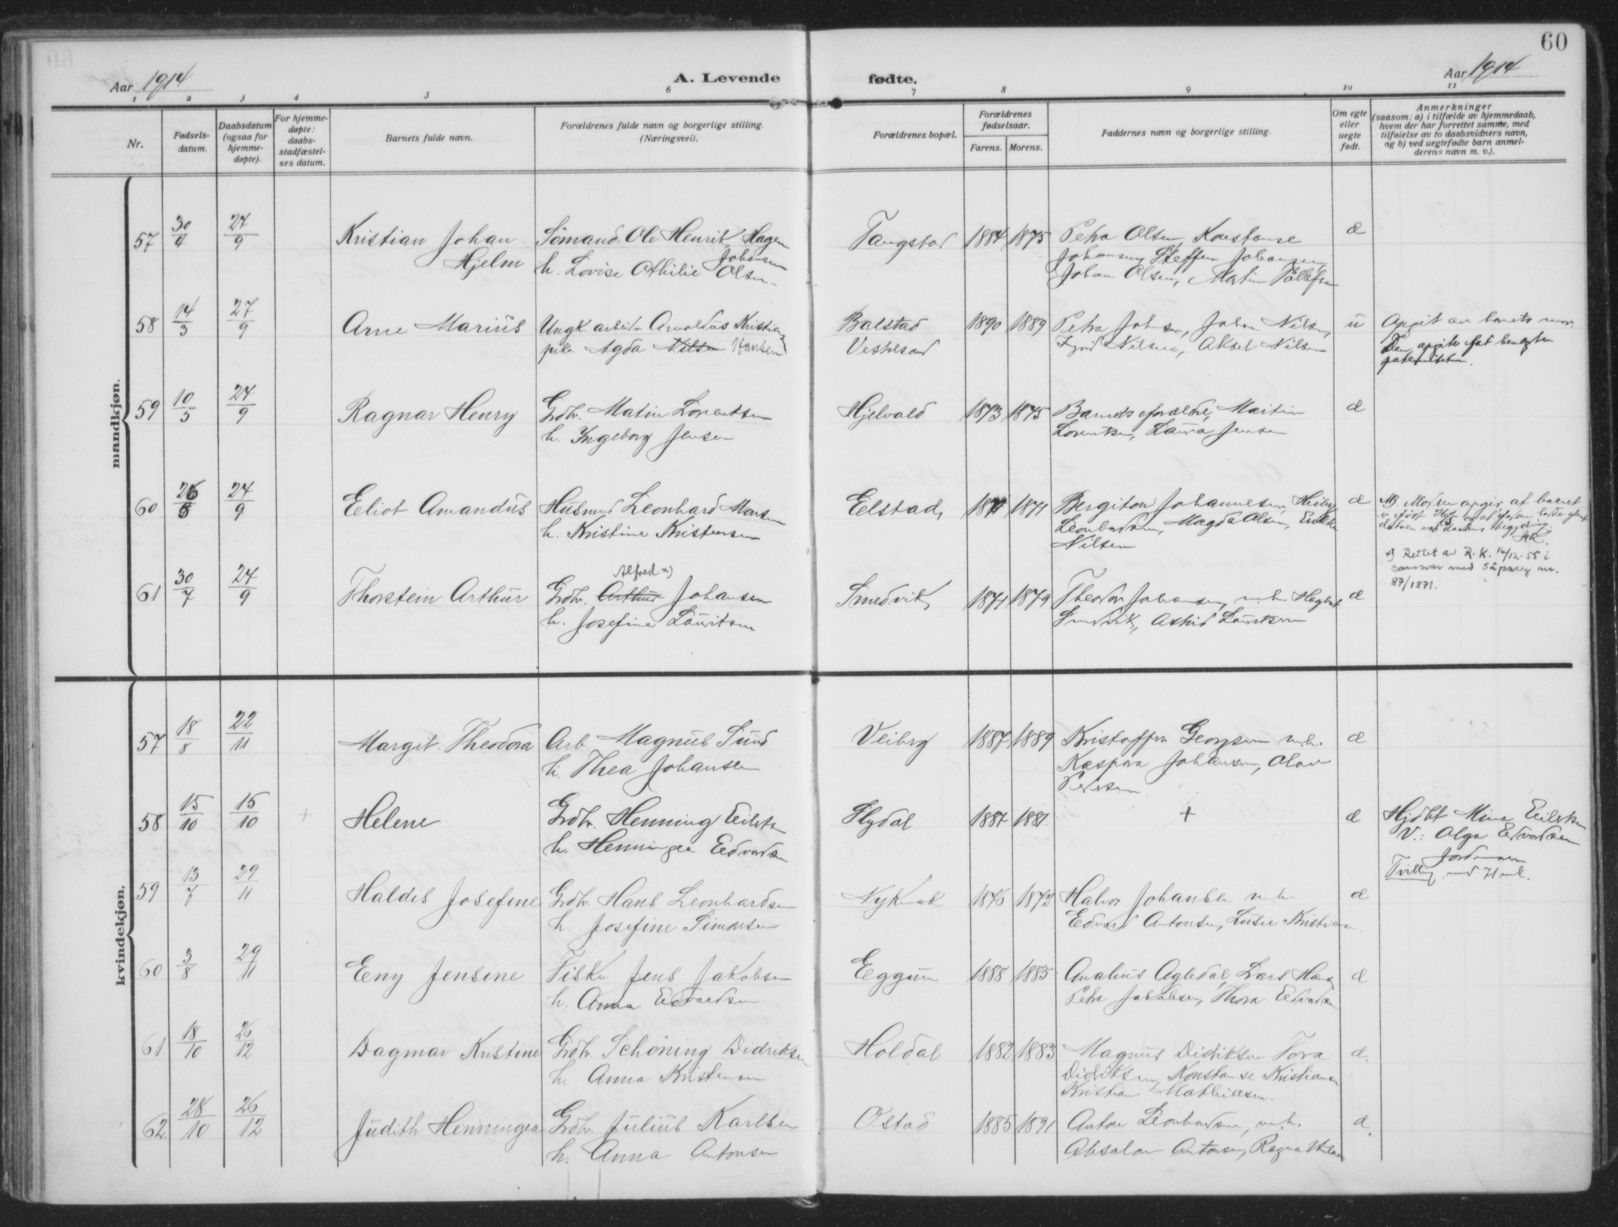 60
Aar 1914
A. Levende
fødte.
Aar 1914
1 2 3 4 5 6 7 8 9 10 11
Nr.
Fødsels-
datum.
Daabsdatum
(ogsaa for
hjemme-
døpte).
For hjemme-
døpte:
daabs-
stadfæstel-
ses datum.
Barnets fulde navn.
Forældrenes fulde navn og borgerlige stilling.
(Næringsvei).
Forældrenes bopæl.
Forældrenes
fødselsaar.
Farens. Morens.
Faddernes navn og borgerlige stilling.
Om egte
eller
uegte
født.
Anmerkninger
(saasom: a) i tilfælde av hjemmedaab,
hvem der har forrettet samme, med
tilføielse av to daabsvidners navn,
og b) ved uegtefødte barn anmel-
derens navn m. v.).
mandkjøn.
57 30/4 27/9 Kristian Johan Sømand Ole Henrik Hagen Tangstad 1884 1875 Petra Olsen, Konstanse æ
Hjelm h. Lovise Othilie Johansen Olsen Johansen, Steffen Johansen
Johan Olsen, Martin
58 14/3 27/9 Arne Marius Ungk. arbeider Arnoldus Kristian Balstad 1890 1889 Petra Johnsen, Johan Nilsen, u Opgit av barnets mor
pike Agda Nilsen Hansen Vestresand Nilsen, Aksel Nilsen
59 10/5 27/9 Ragnar Henry Grdbr. Matin Lorentsen Hjelvald 1873 1875 Barnets forældre, Martin æ
h. Ingeborg Jensen Lorentsen, Laura Jensen
60 26/5 24/9 Eliot Amandus Husmd Leonhard Monsen Eelstad, 1871 1871 Bergiton Johannesen, æ
h. Kristine Kristensen Leonhardsen, Magda Olsen,
Nilsen
61 30/7 24/9 Thorstein Arthur Grdbr. Arthur Alfred x) Johansen Smedvik, 1871 1879 Theodor Johansen, m.h. æ x) Rettet av R.K. 16/12-55 i
samsvar med dåpsreg nr.
87/1871.
h. Josefine Lauritsen Smedvik, Astrid Lauritsen
kvindekjøn.
57 18/8 22/11 Margit Theodora Arb. Magnus Sund Veiberg 1887 1889 Kristoffer Georgsen m.h. æ
h. Thea Johansen Kaspara Johansen, Olav
Pedersen
58 15/10 15/10 + Helene Grdbr. Henning Eilertsen Flydal 1887 1881 + æ Hjdbt Mina Eilertsen
h. Henningea Edvardsen V.: Olga Edvardsen
Jordmoren
Tvilling med
59 13/7 29/11 Haldis Josefine Grdbr. Hans Leonhardsen Nykmark 1876 1872 Halvor Johansen m.h. æ
h. Josefine Simonsen Edvard Antonsen, Lusie Kristiansen
60 3/8 29/11 Eny Jensine Fisker Jens Jakobsen Eggum 1888 1885 Analius Agledal, Lars Hansen æ
h. Anna Edvardsen Petra Jakobsen, Thora Edvardsen
61 18/10 26/12 Dagmar Kristine Grdbr. Schöning Didriksen Holdal 1882 1883 Magnus Didriksen Tora æ.
h. Anna Kristensen Didriksen, Konstanse Kristiansen
Kristian Mathiassen.
62 28/10 26/12 Judith Henningea Grdbr. Julius Karlsen Ostad 1885 1891 Anton Leonhardsen, m.h. æ.
h. Anna Antonsen Absalon Antonsen, Ragna